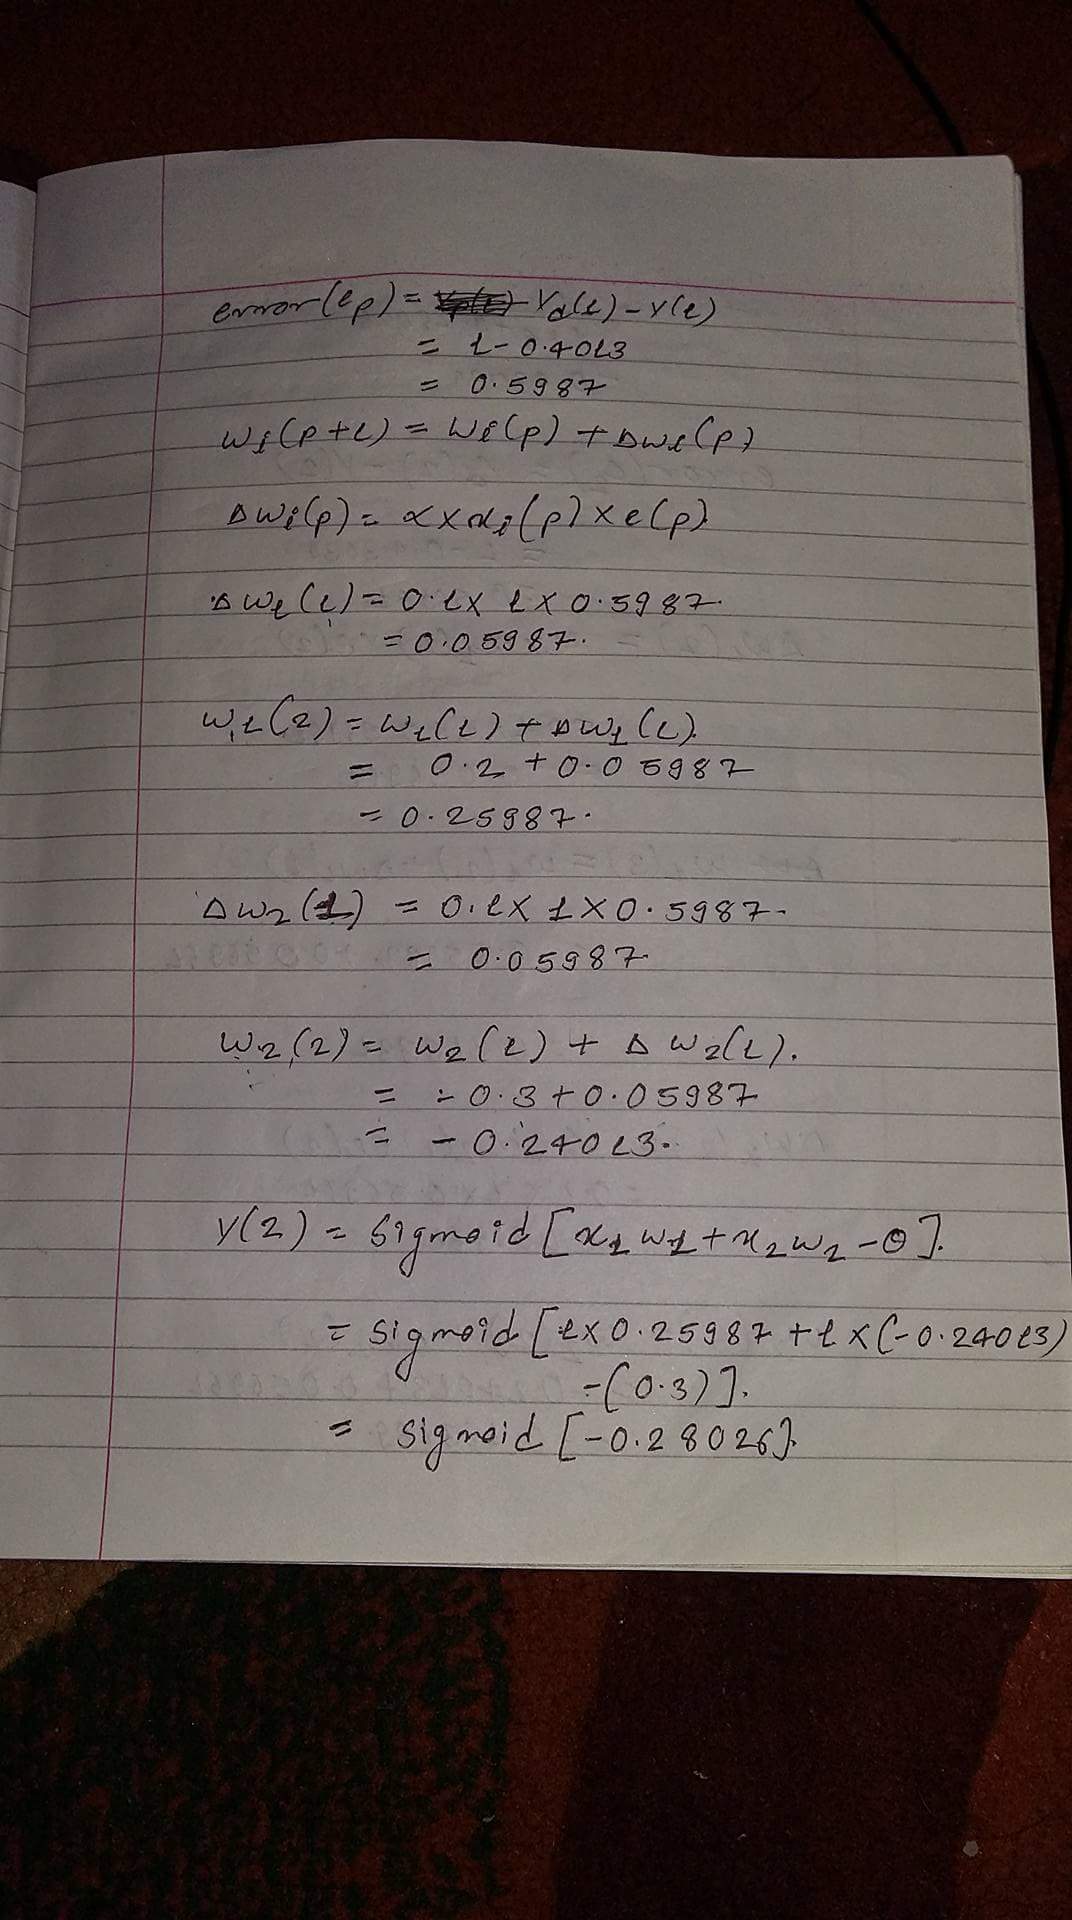 error(ep) = Yd(1) - Y(1)
= 1 - 0.4013
= 0.5987
wi(p+1) = wi(p) + Δwi(p)
Δwi(p) = α × xi(p) × e(p)
Δw1(1) = 0.1 × 1 × 0.5987.
= 0.05987.
w1(2) = w1(1) + Δw1(1).
= 0.2 + 0.05987
= 0.25987.
Δw2(1) = 0.1 × 1 × 0.5987.
= 0.05987
w2(2) = w2(1) + Δw2(1).
= -0.3 + 0.05987
= -0.24013.
Y(2) = Sigmoid [x1w1 + x2w2 - θ].
= Sigmoid [1 × 0.25987 + 1 × (-0.24013)
- (0.3)].
= Sigmoid [-0.28026].